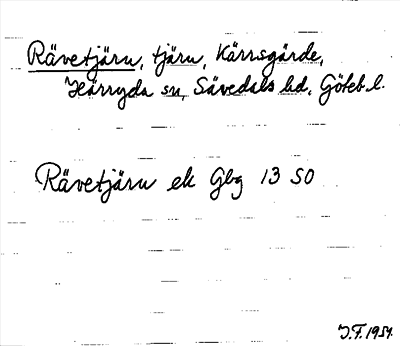 Rävetjärn, tjärn, Kärrsgärde,
Härryda sn, Sävedals hd, Göteb. l.
Rävetjärn ek Gbg 13 SO
J.F. 1954.